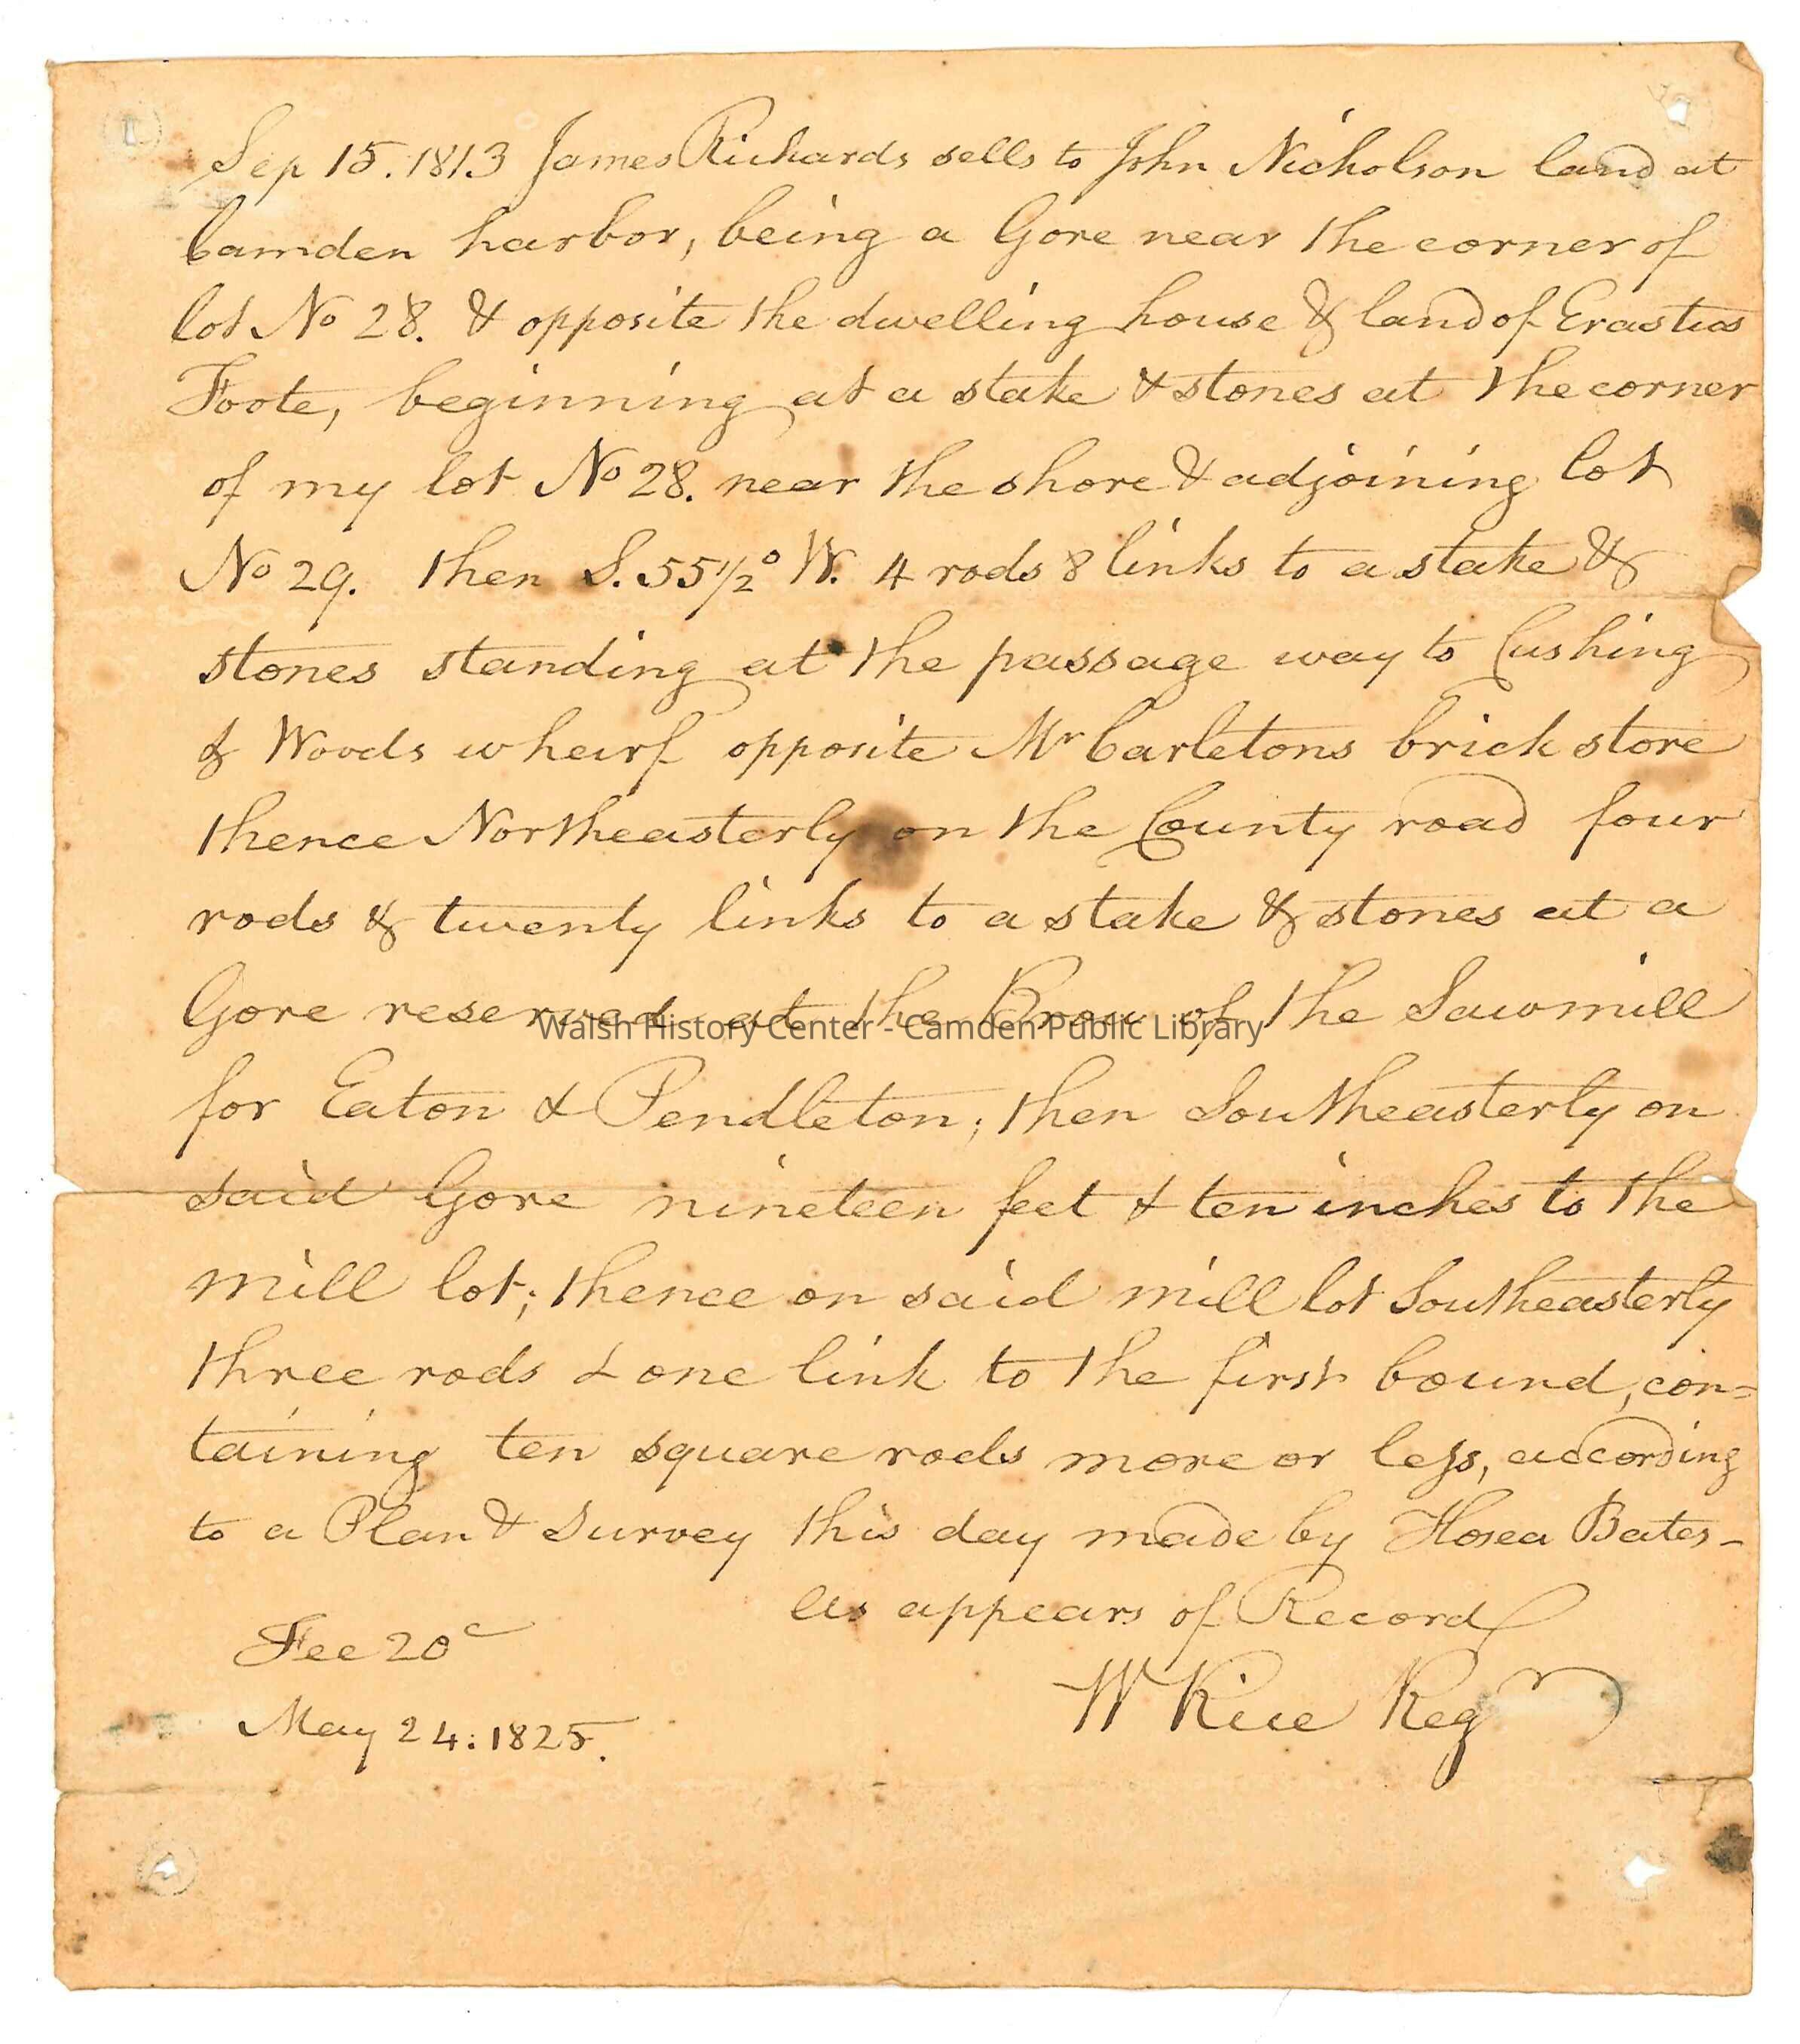 Sep 15. 1813 James Richards sells to John Nicholson land at
Camden harbor, being a Gore near the corner of
lot No 28. & opposite the dwelling house & land of Erastus
Foote, beginning at a stake & stones at the corner
of my lot No 28. near the shore & adjoining lot
No 29. then S. 55 1/2° W. 4 rods 8 links to a stake &
stones standing at the passage way to Cushing
& Woods wharf opposite Mr Carletons brick store
thence Northeasterly on the County road four
rods & twenty links to a stake & stones at a
Gore reserved at the Brow of the Sawmill
Walsh History Center - Camden Public Library
for Eaton & Pendleton; then Southeasterly on
said Gore nineteen feet & ten inches to the
mill lot; thence on said mill lot Southeasterly
three rods & one link to the first bound, con=
taining ten square rods more or less, according
to a Plan & Survey this day made by Hosea Bates -
as appears of Record
Fee 20c
W Rice Regr
May 24: 1825.